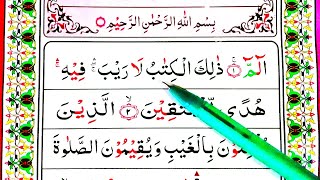 بِسْمِ اللهِ الرَّحْمٰنِ الرَّحِيْمِ
الٓمّٓ ۚ﴿۱﴾ ذٰلِكَ الْكِتٰبُ لَا رَيْبَ ۛۚ فِيْهِ ۛۚ
هُدًى لِّلْمُتَّقِيْنَ ۙ﴿۲﴾ الَّذِيْنَ
يُؤْمِنُوْنَ بِالْغَيْبِ وَيُقِيْمُوْنَ الصَّلٰوةَ